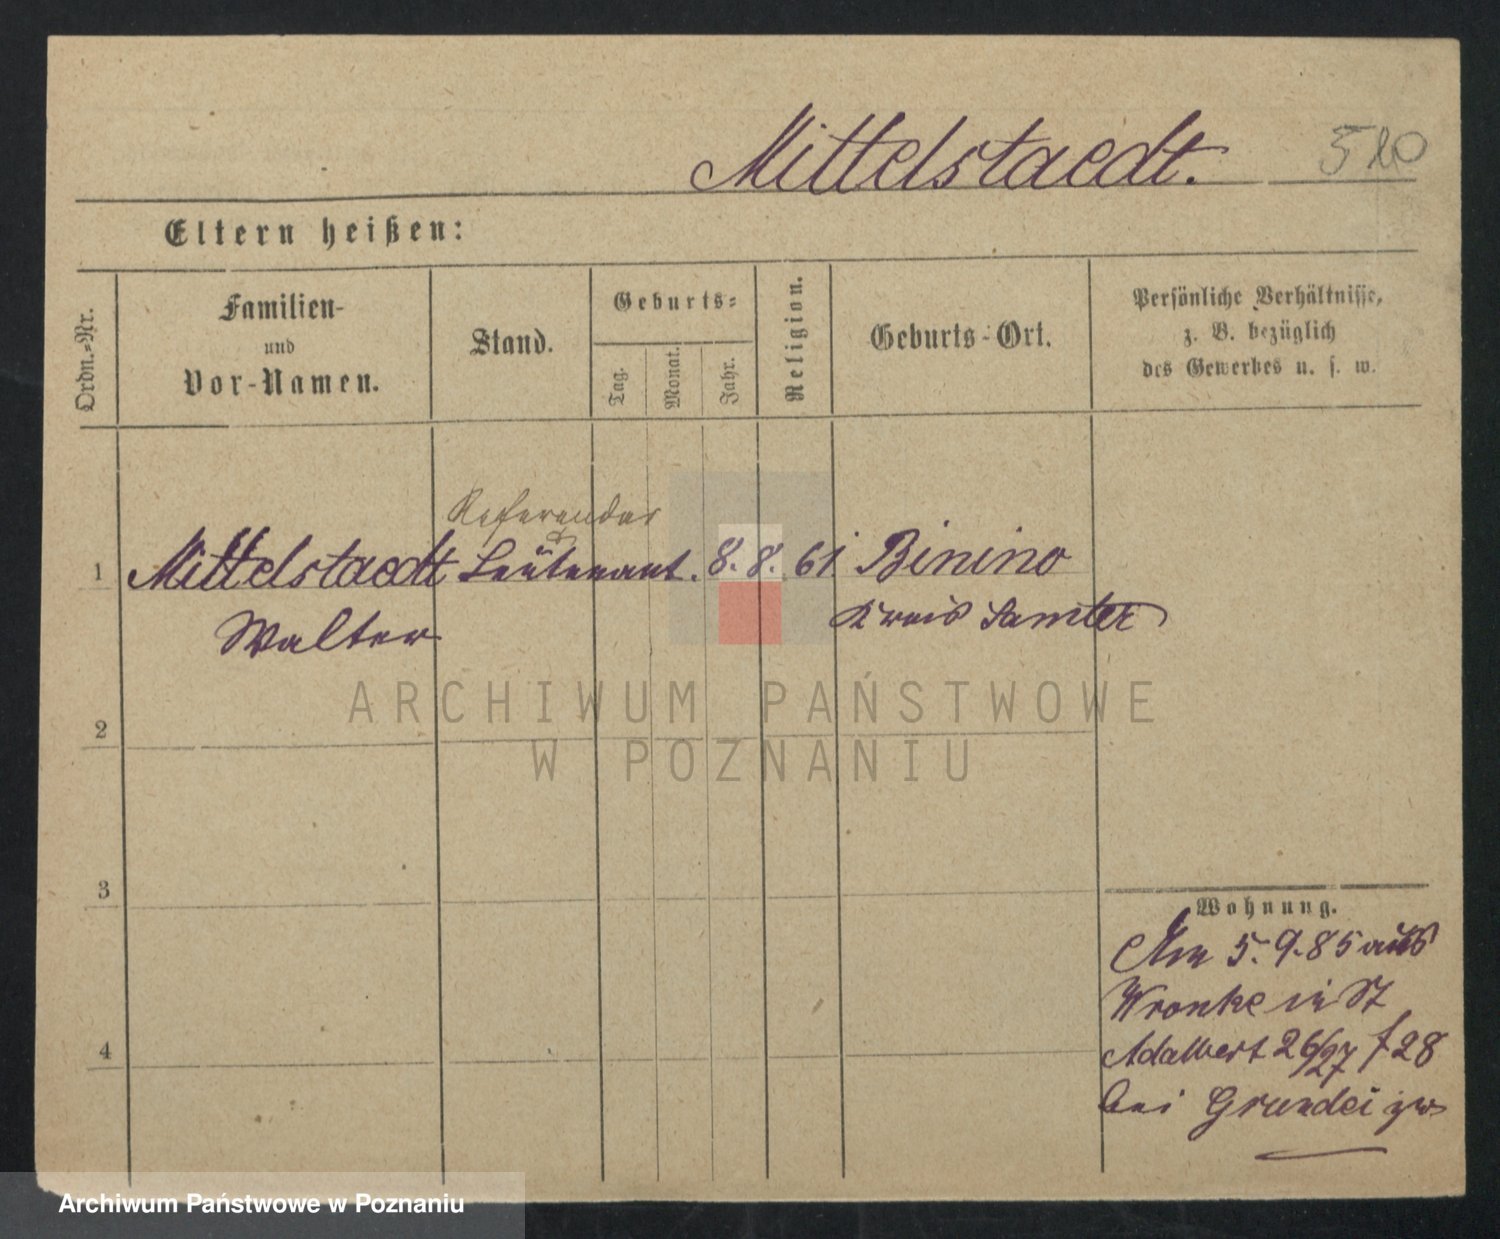 Mittelstaedt.
Eltern heißen:
Ordn.=Nr.
Familien-
und
Vor-Namen.
Stand.
Geburts=
Tag.
Monat.
Jahr.
Religion.
Geburts-Ort.
Persönliche Verhältnisse,
z. B. bezüglich
des Gewerbes u. s. w.
Referendar
1 Mittelstaedt Leutenant. 8. 8. 61 Binino
Walter Kreis Samter
ARCHIWUM PAŃSTWOWE
W POZNANIU
2
3
4
Wohnung.
Am 5. 9. 85 aus
Wronke in St
Adalbert 26/27 f 28
bei Grundei
Archiwum Państwowe w Poznaniu